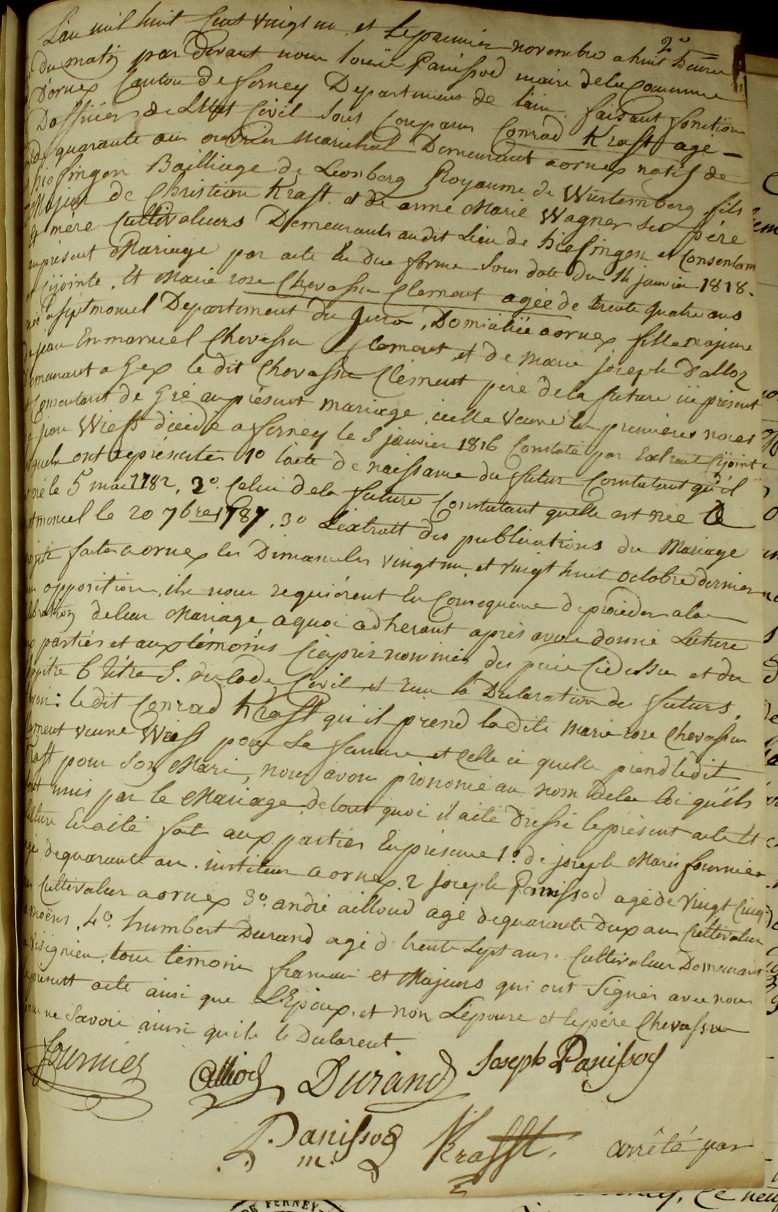 2e
L'an mil huit cent vingt un et le premier novembre a huit heures
du matin par devant nous louis Panissod maire de la commune
D'ornex Canton de ferney Departement de l'ain faisant fonction
D'officier de L'Etat Civil sont comparus Conrad Krafft agé
de quarante ans ouvrier Marechal Demeurant a ornex natif de
hiefingen Bailliage de Leonberg Royaume de Wirtemberg fils
Majeur de Christian Krafft et de anne Marie Wagner ses père
et mère Cultivateurs Demeurants audit Lieu de hiefingen et Consentant
au présent Mariage par acte En Due forme sous date du 14 janvier 1818
cijointe. Et Marie rose Chevassu Clement agée de trente quatre ans
née a septmoncel Departement du Jura, Domiciliée a ornex fille majeure
de jean Emmanuel Chevassu Clement et de Marie joseph Dalloz
Demeurant a Gex le dit Chevassu Clément père de la future ici present
et Consentant de Gré au présent mariage, icelle Veuve En premieres noces
de jean Wiess décédé a ferney le 5 janvier 1816 Constaté par Extrait Cijoint
lesquels ont représenté 1o l'acte de naissance du futur Constatant qu'il
est né le 5 mai 1782, 2o Celui de la future Constatant quelle est née a
septmoncel le 20 7bre 1787, 3o L'extrait des publications du Mariage
projeté faites a ornex les Dimanches vingt un et vingt huit octobre dernier
sans opposition, ils nous requièrent En Consequence de proceder a la
célébration de leur Mariage a quoi adherant après avoir donné Lecture
aux parties et aux témoins Ciaprès nommés des pieces Cidessus et du
chapitre 6 titre 5 du Code Civil et reçu la Declaration des futurs,
savoir: le dit Conrad Krafft qu'il prend la dite Marie rose Chevassu
Clement veuve Wiess pour Sa femme, et Celle ci quelle prend le dit
Krafft pour Son Mari, nous avons prononcé au nom de la loi qu'ils
sont unis par le Mariage. De tout quoi il a été Dressé le présent acte Et
lecture En a été fait aux parties En présence 1o de joseph Marie fournier
agé de quarante ans instituteur a ornex 2 Joseph Panissod agé de vingt cinq
ans Cultivateur a ornex 3o andré ailloud agé de quarante Deux ans Cultivateur
4o humbert Durand agé de trente Sept ans. Cultivateur Demeurant
tous témoins francais et Majeurs qui ont Signés avec nous
le présent acte ainsi que L'Epoux, et non L'epouse et le père Chevassu
pour ne Savoir ainsi qu'ils le Declarent
fournier Durand Joseph Panissod
Panissod
m. Krafft. arrêté par
DE FERNEY